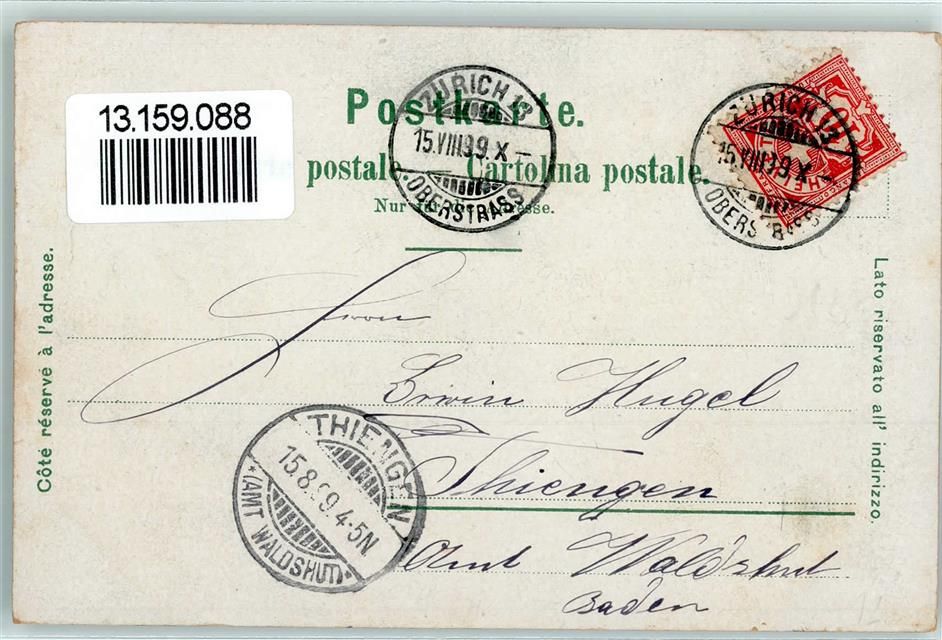 13.159.088
Postkarte.
postale. Cartolina postale.
Nur für die Adresse.
ZÜRICH 13
15.VIII.99.X–
OBERSTRASS
ZÜRICH 13
15.VIII.99.X–
OBERSTRASS
Côté réservé à l'adresse.
Lato riservato all' indirizzo.
Herrn
Erwin Hugel
Thiengen
Amt Waldshut
Baden
THIENGEN
15.8.99.4-5N
(AMT WALDSHUT)